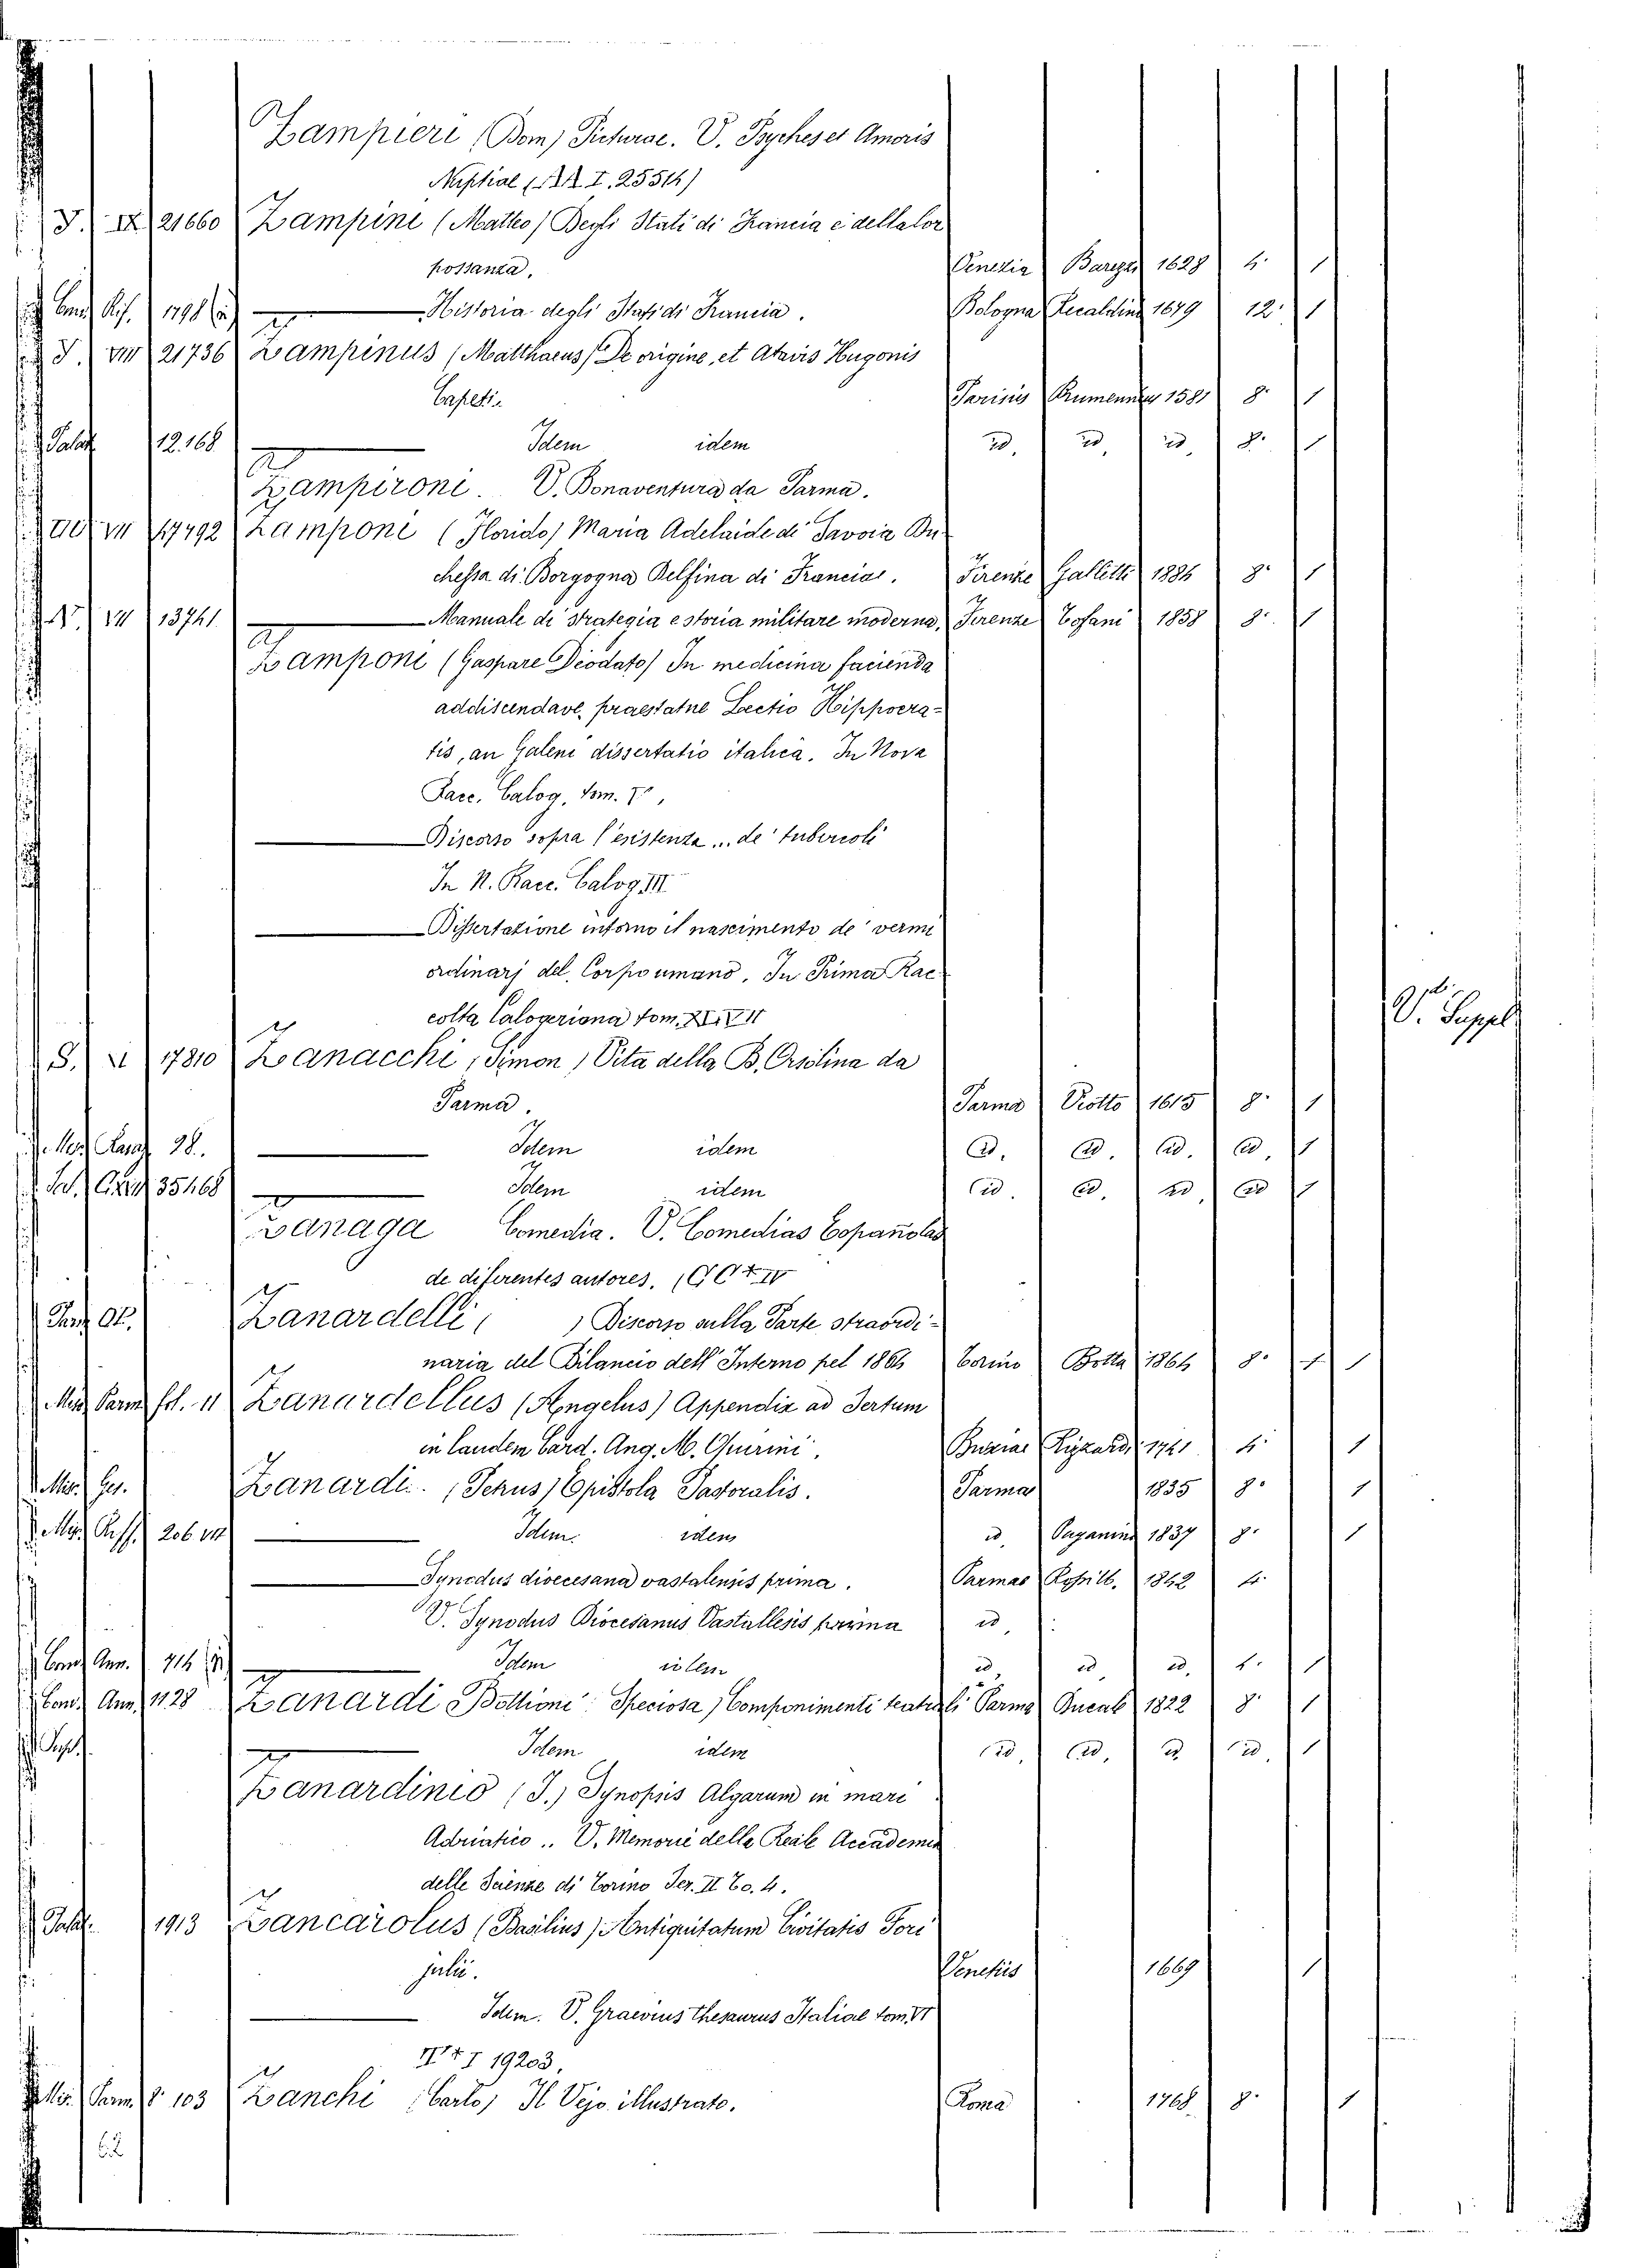 Zampieri (Dom) Picturae. V. Psyches et Amoris
Nuptial (AA. I. 25514)
J. IX 21660 Zampini (Matteo) Degli Stati di Francia e della lor
possanza. Venezia Barezzi 1628 4. 1
Bond Rif. 1798 (2) — Historia degli Stati di Francia. Bologna Recaldini 1679 12. 1
J. VIII 21736 Zampinus (Matthaeus) De origine, et Atavis Hugonis
Capeti. Parisiis Brumennius 1581 8. 1
Palat 12.168 Idem idem id. id. id. 8. 1
Zampironi. V. Bonaventura da Parma.
VII 17792 Zamponi (Florido) Maria Adelaide di Savoia Du-
chessa di Borgogna Delfina di Francia. Firenze Galletti 1886 8. 1
VI 13741 — Manuale di strategia e storia militare moderna, Firenze Tofani 1858 8. 1
Zamponi (Gaspare Diodato) In medicina facienda
addiscendave, praestatne Lectio Hippocra-
tis, an Galeni dissertatio italica. In Nova
Racc. Calog. tom.
— Discorso sopra l'esistenza ... de' tubercoli
In N. Racc. Calog. III
— Dissertazione intorno il nascimento de' vermi
ordinarj del Corpo umano. In Prima Rac
colta Calogeriana tom. XLVII
S. XI 17810 Zanacchi, Simon, Vita della B. Orsolina da
Parma. Parma Viotto 1615 8. 1
Mor Parm 28. — Idem idem id. id. id. id. 1
35468 — Idem idem id. id. id. id. 1
Zanaga Comedia. V. Comedias Españolas
de diferentes autores. (CC+ IV
Zanardelli, ) Discorso sulla Parte straordi-
naria del Bilancio dell'Interno pel 1864 Torino Botta 1864 8. 1
Mis Parm fol. 11 Zanardellus (Angelus) Appendix ad Sertum
in laudem Card. Ang. M. Quirini. Brixiae Rizzardi 1741 4. 1
Mis. Ges. Zanardi. (Petrus) Epistola Pastoralis. Parmae 1835 8. 1
Mis 206 — Idem. idem id. Paganini 1837 8. 1
— Synodus dioecesana vastalensis prima. Parmae Rossetti. 1842 4.
V. Synodus Diocesanus Vastallesis prima id.
Bond Ann. 714 — Idem idem id. id. id. 4. 1
Bond Ann. 1128 Zanardi Bottioni Speciosa) Componimenti teatrali Parma Ducale 1822 8. 1
Idem idem id. id. id. id. 1
Zanardinio (J.) Synopsis Algarum in mari
Adriatico .. V. Memorie della Reale Accademia
delle Scienze di Torino Ser. II To. 4.
Palat. 1913 Zancarolus (Basilius) Antiquitatum Civitatis Fori
julii. Venetiis 1669 1
— Idem. V. Graevius thesaurus Italiae tom. VI
19203.
Mis. Parm. 8. 103 Zanchi (Carlo) Il Vejo illustrato. Roma 1768. 8. 1
62
V. Suppl.